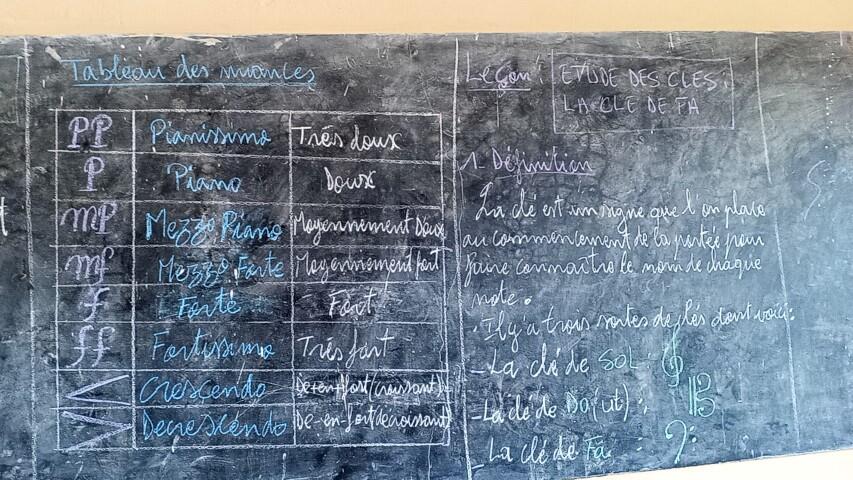 Tableau des nuances
PP Pianissimo Très doux
P Piano Doux
mp Mezzo Piano Moyennement Doux
mf Mezzo Forte Moyennement fort
f Forté Fort
ff Fortissimo Très fort
Crescendo De-en-fort (croissant)
Decrescéndo De-en-fort décroissant
Leçon: ETUDE DES CLES:
LA CLE DE FA
1. Définition
La clé est un signe que l'on place
au commencement de la portée pour
faire connaître le nom de chaque
note.
Il y'a trois sortes de clés dont voici:
- La clé de SOL:
- La clé de Do (ut) :
- La clé de Fa :